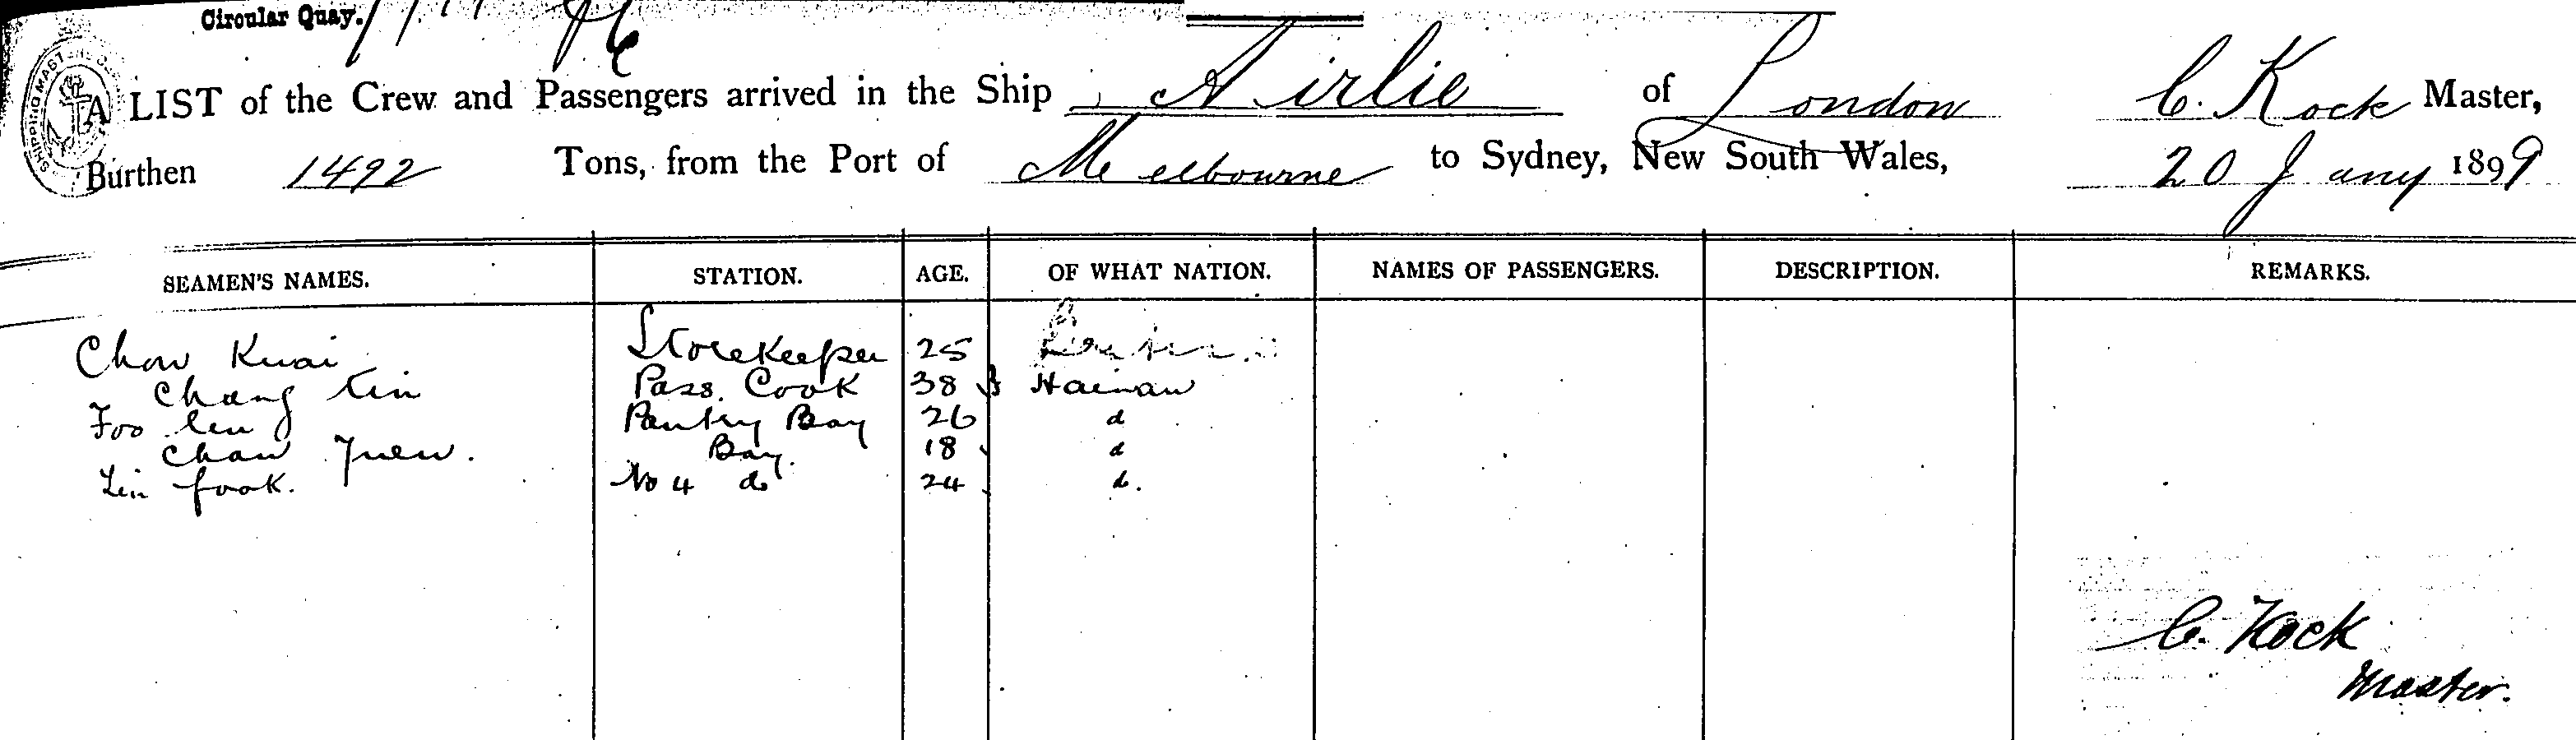 Circular Quay.
SHIPPING MAST
A LIST of the Crew and Passengers arrived in the Ship Airlie of London C. Kock Master,
Burthen 1492 Tons, from the Port of Melbourne to Sydney, New South Wales, 20 Jany 1899
SEAMEN'S NAMES. STATION. AGE. OF WHAT NATION. NAMES OF PASSENGERS. DESCRIPTION. REMARKS.
Chow Kuai Storekeeper 25
Chang Kin Pass. Cook 38 Hainan
Foo Pantry Boy 26 d
Chan Yuen. Boy. 18 d
Lin fook. No 4 do 24 d.
C. Kock
Master.